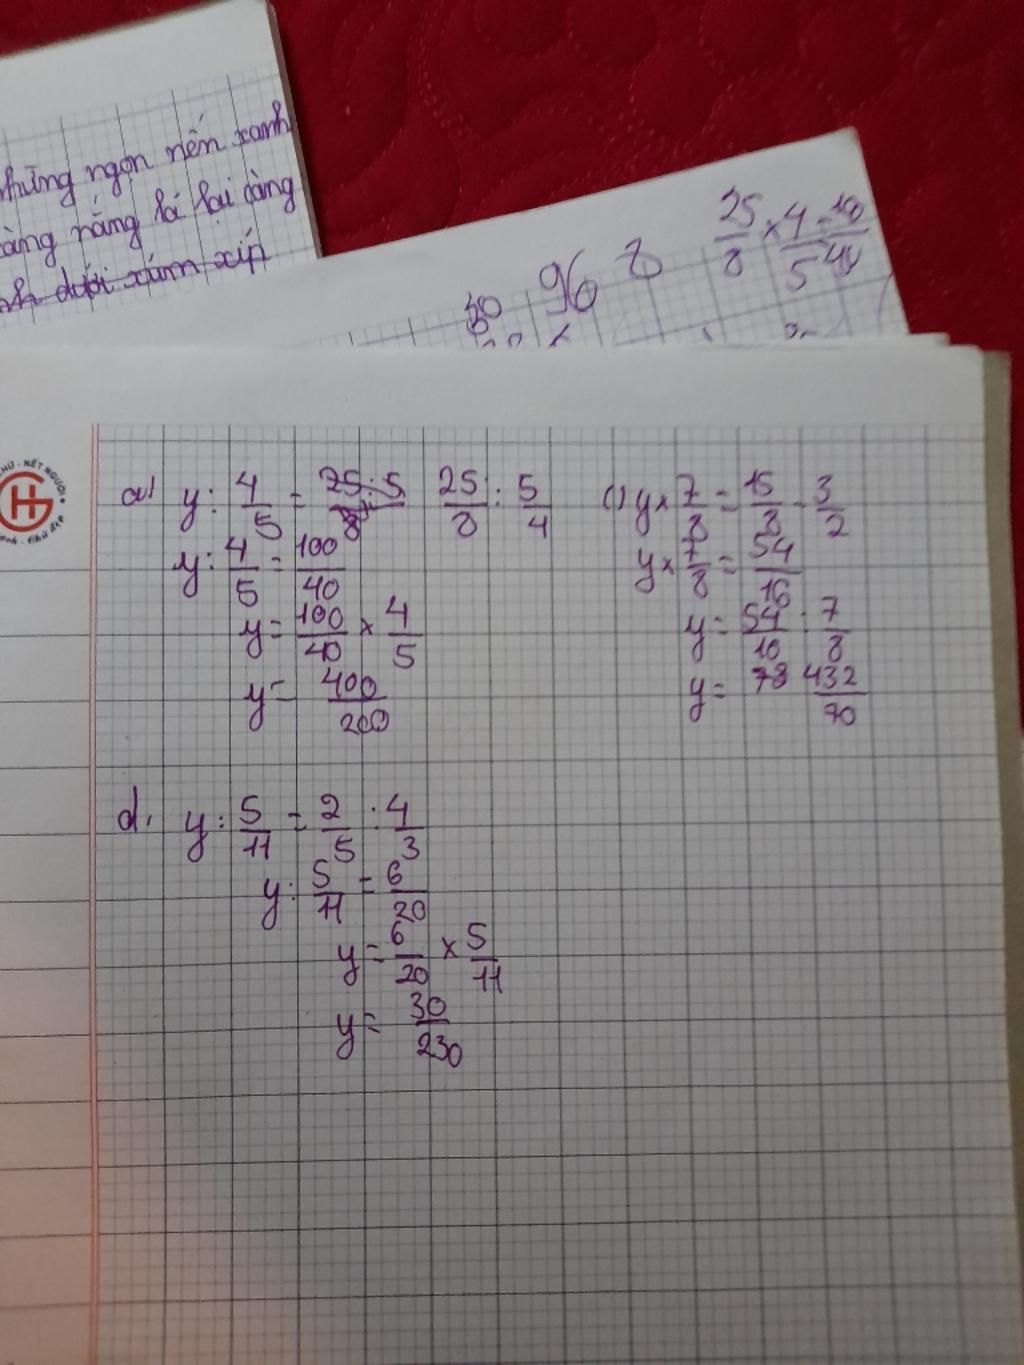 những ngọn nến xanh
càng nắng lá lại càng
xúm xít
25/8 × 4/5 =
96 8
NẾT NGƯỜI
a) y : 4/5 = 25/8 : 5/4
y : 4/5 = 100/40
y = 100/40 × 4/5
y = 400/200
c) y × 7/8 = 15/8 - 3/2
y × 7/8 = 54/16
y = 54/10 : 7/8
y = 78 432/70
d, y : 5/11 = 2/5 : 4/3
y : 5/11 = 6/20
y = 6/20 × 5/11
y = 30/230